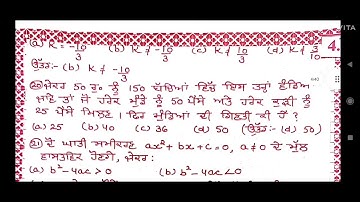 (a) K = -10/3 (b) K ≠ -10/3 (c) K ≠ 10/3 (d) K ≠ 3/10
ਉੱਤਰ:- (b) K ≠ -10/3
(20) ਜੇਕਰ 50 ਰੁ: ਨੂੰ 150 ਬੱਚਿਆਂ ਵਿੱਚ ਇਸ ਤਰ੍ਹਾਂ ਵੰਡਿਆ
ਜਾਵੇ ਤਾਂ ਜੋ ਹਰੇਕ ਮੁੰਡੇ ਨੂੰ 50 ਪੈਸੇ ਅਤੇ ਹਰੇਕ ਕੁੜੀ ਨੂੰ
25 ਪੈਸੇ ਮਿਲਣ। ਫਿਰ ਮੁੰਡਿਆਂ ਦੀ ਗਿਣਤੀ ਕੀ ਹੈ?
(a) 25 (b) 40 (c) 36 (d) 50 (ਉੱਤਰ:- (d) 50)
(21) ਦੋ ਘਾਤੀ ਸਮੀਕਰਣ ax² + bx + c = 0, a ≠ 0 ਦੇ ਮੂਲ
ਵਾਸਤਵਿਕ ਹੋਣਗੇ, ਜੇਕਰ:
(a) b² - 4ac > 0 (b) b² - 4ac < 0
4